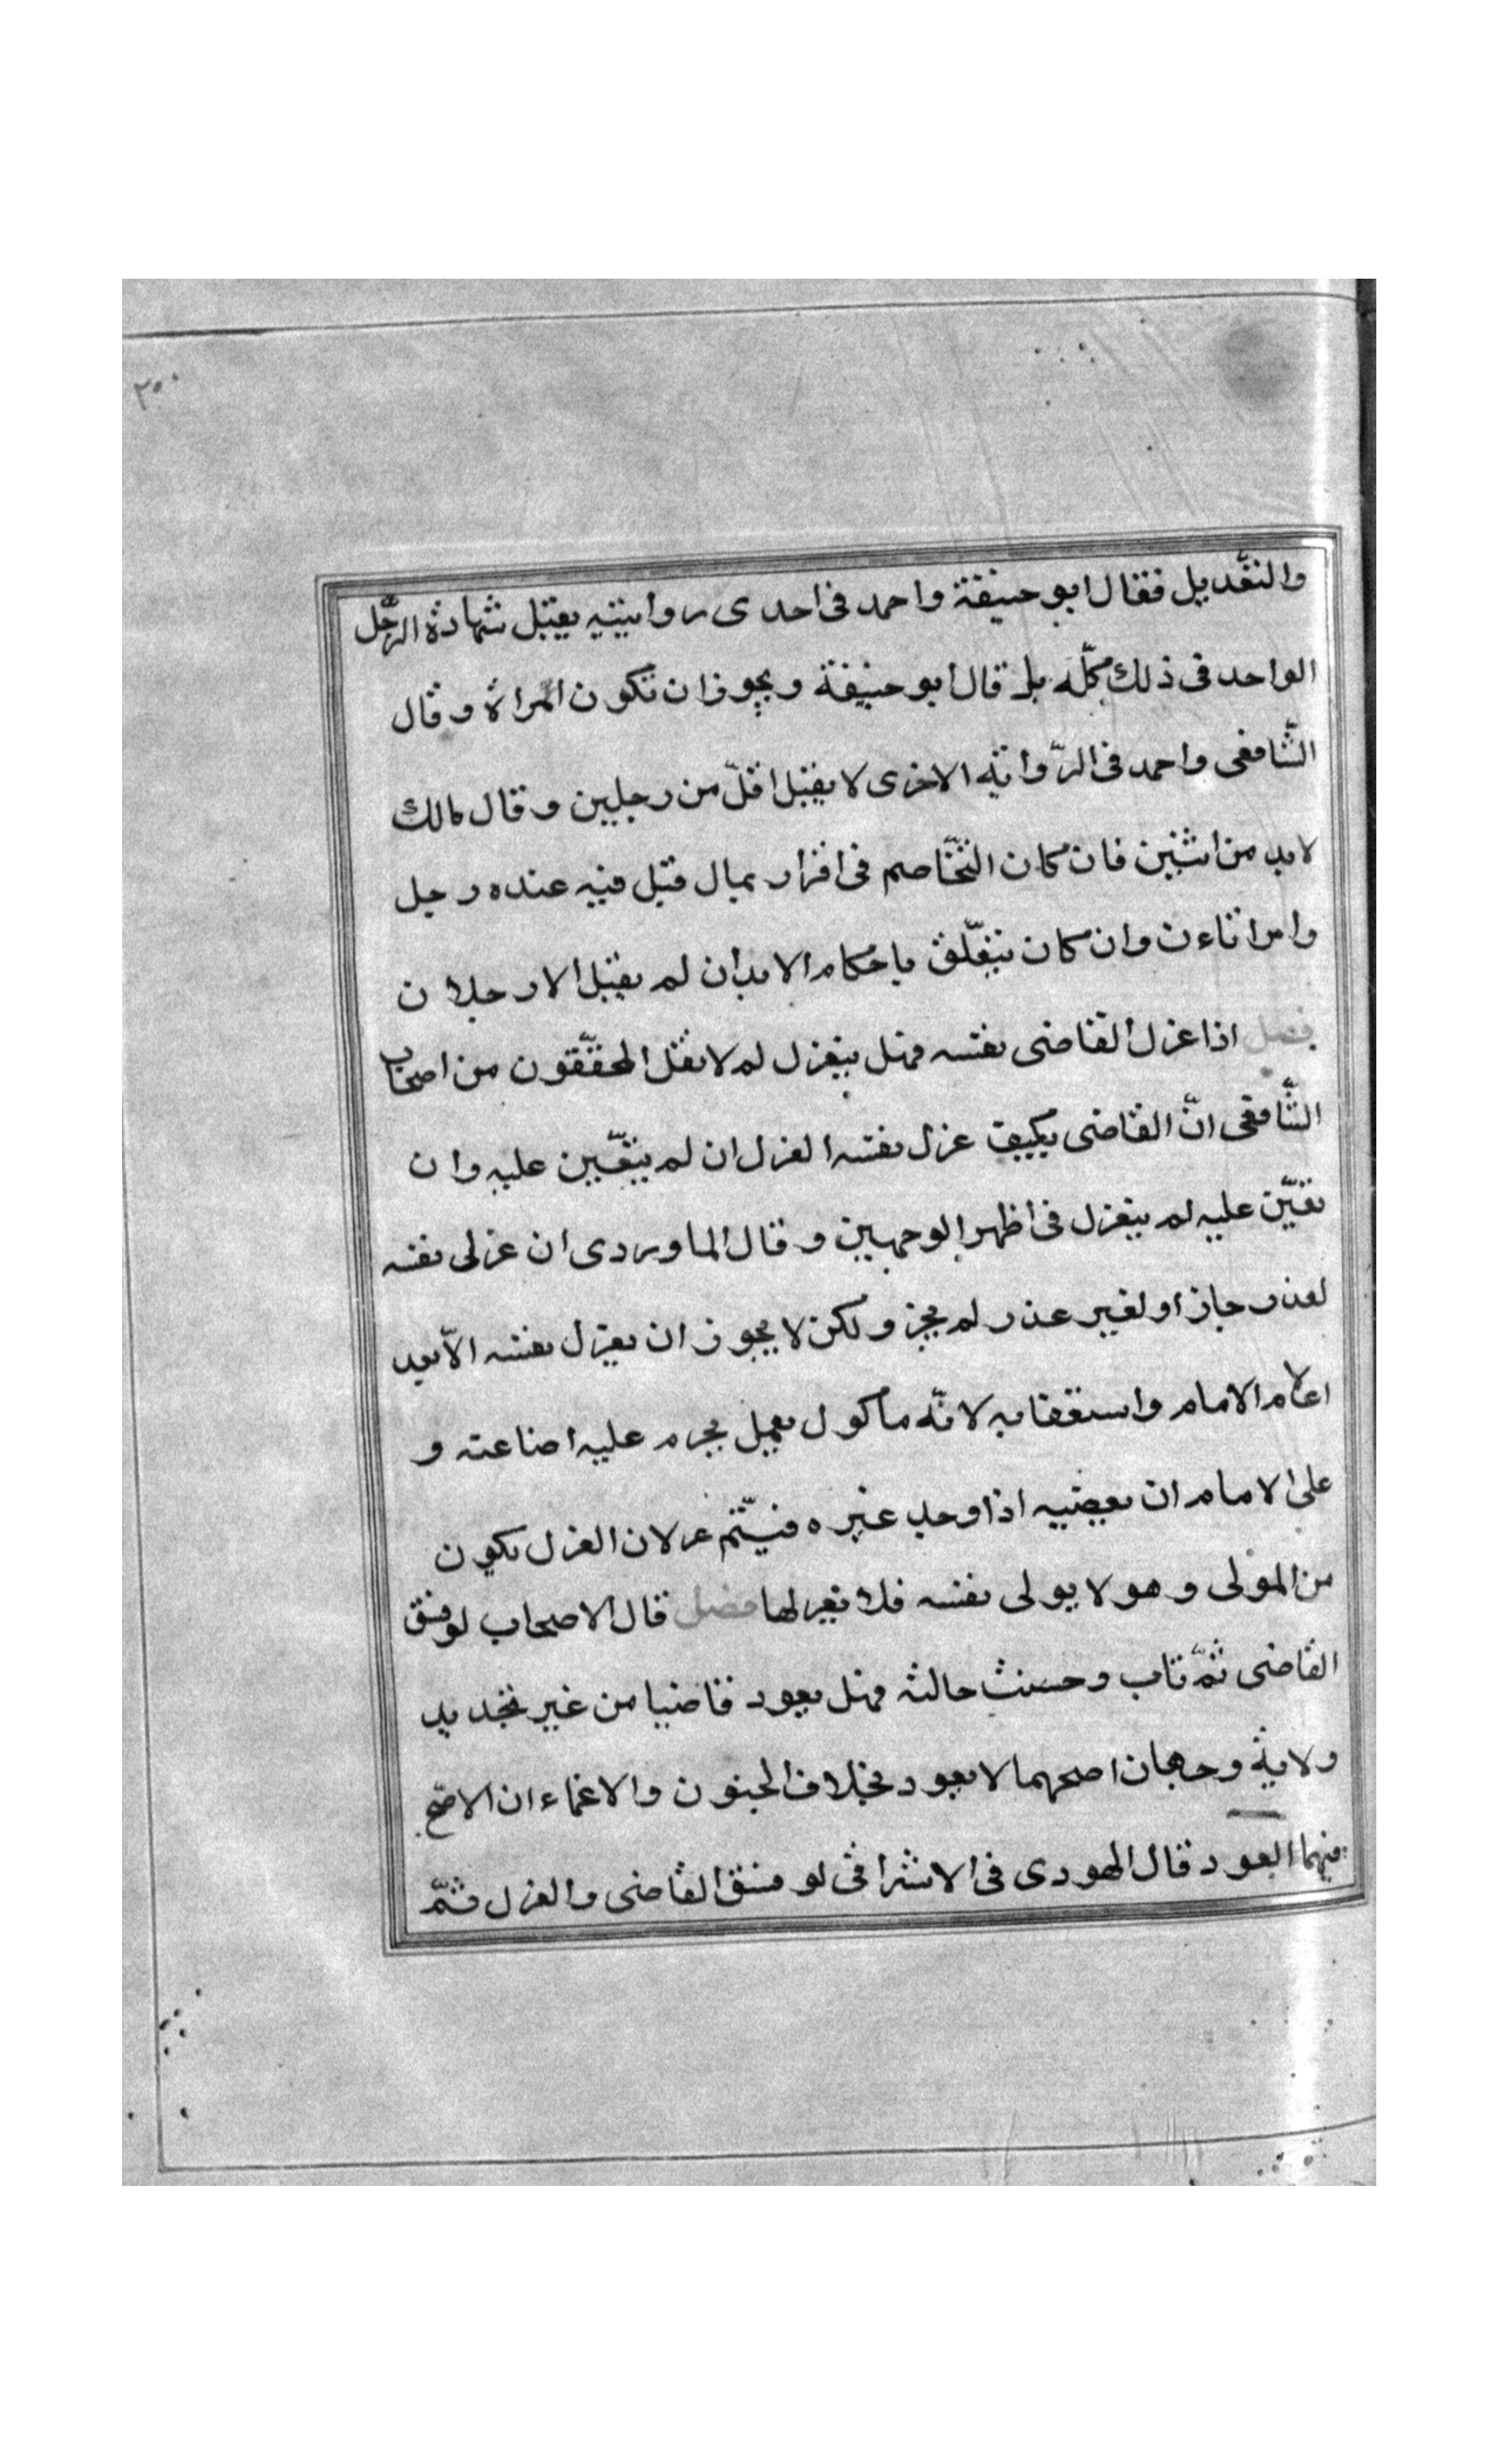 ٣٥٠
والتعديل فقال ابو حنيفة واحمد فى احدى روايتيه يقبل شهادة الرّجل
الواحد فى ذلك كلّه بل قال ابو حنيفة ويجوز ان تكون امراة وقال
الشّافعى واحمد فى الرّواية الاخرى لا يقبل اقلّ من رجلين وقال مالك
لابد من اثنين فان كان التّخاصم فى اقرار بمال قبل فيه عنده رجل
وامراتاءن وان كان يتعلّق باحكام الابدان لم يقبل الا رجلان
فصل اذا عزل القاضى نفسه فهل ينعزل لم لا نقل المحقّقون من اصحاب
الشّافعى انّ القاضى عزل نفسه العزل ان لم يتعّين عليه وان
تعيّن عليه لم ينعزل فى اظهر الوجهين وقال الماوردى ان عزلى نفسه
لعذر جاز او لغير عذر لم يجز ولكن لا يجوز ان يعزل نفسه الّا بعد
اعلام الامام واستعفايه لانّه ماكول بعمل يحرم عليه اضاعته و
على الامام ان يعفيه اذا وجد غيره فيّتم عزلان العزل يكون
من المولى وهو لا يولى نفسه فلا يعزلها فصل قال الاصحاب لو فسق
القاضى ثمّ تاب وحسنت حالته فهل يعود قاضيا من غير تجديد
ولاية وجهان اصحهما لا يعود بخلاف الجنون والاغماء ان الاصّح
فيهما العود قال الهودى فى الاشراف لو فسق القاضى والعزل فثمّ